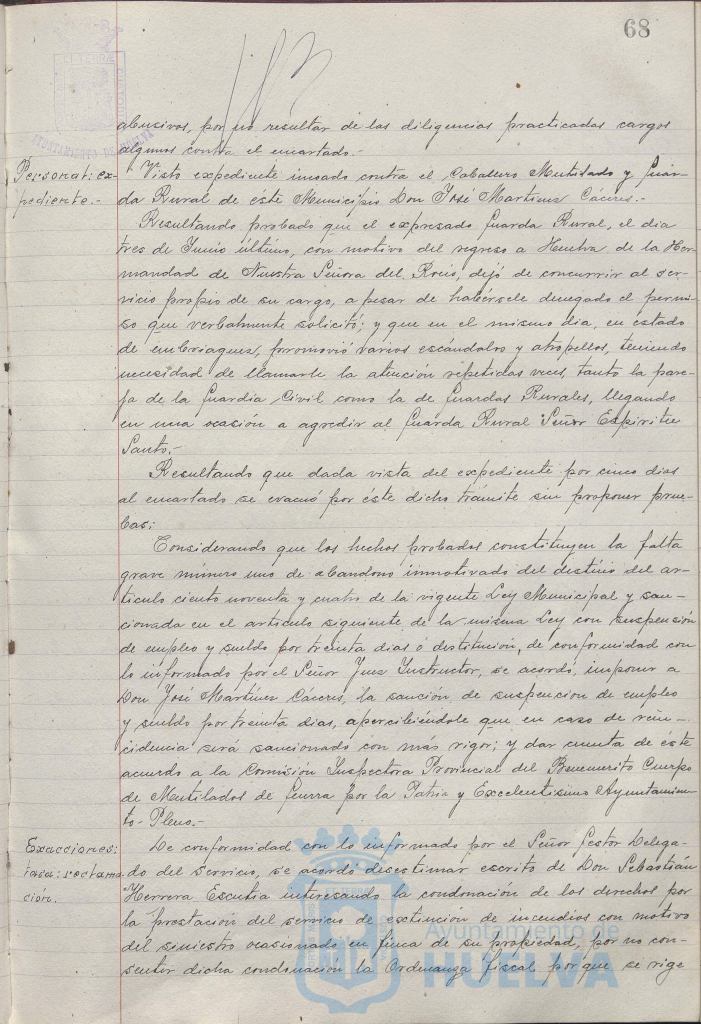 68
abusivos, por no resultar de las diligencias practicadas cargos
algunos contra el encartado.-
Personal: ex-
pediente.-
Visto expediente incoado contra el Caballero Mutilado y Guar-
da Rural de éste Municipio Don José Martínez Cáceres.-
Resultando probado que el expresado Guarda Rural, el dia
tres de Junio último, con motivo del regreso a Huelva de la Her-
mandad de Nuestra Señora del Rocío, dejó de concurrir al ser-
vicio propio de su cargo, a pesar de habérsele denegado el permi-
so que verbalmente solicitó; y que en el mismo dia, en estado
de embriaguez, promovió varios escándalos y atropellos, teniendo
necesidad de llamarle la atención repetidas veces, tanto la pare-
ja de la Guardia Civil como la de Guardas Rurales, llegando
en una ocasión a agredir al Guarda Rural Señor Espiritu
Santo.-
Resultando que dada vista del expediente por cinco dias
al encartado se evacuó por éste dicho trámite sin proponer prue-
bas;
Considerando que los hechos probados constituyen la falta
grave número uno de abandono inmotivado del destino del ar-
tículo ciento noventa y cuatro de la vigente Ley Municipal y san-
cionada en el artículo siguiente de la misma Ley con suspensión
de empleo y sueldo por treinta dias ó destitución, de conformidad con
lo informado por el Señor Juez Instructor, se acordó, imponer a
Don José Martínez Cáceres, la sanción de suspencion de empleo
y sueldo por treinta dias, apercibiéndole que en caso de rein-
cidencia será sancionado con más rigor; y dar cuenta de éste
acuerdo a la Comisión Inspectora Provincial del Benemerito Cuerpo
de Mutilados de Guerra por la Patria y Excelentisimo Ayuntamien-
to Pleno.-
Exacciones:
tasa: reclama-
ción.
De conformidad con lo informado por el Señor Gestor Delega-
do del servicio, se acordó desestimar escrito de Don Sebastián
Herrera Escutia interesando la condonación de los derechos por
la prestación del servicio de extinción de incendios con motivo
del siniestro ocasionado en finca de su propiedad, por no con-
sentir dicha condonación la Ordenanza fiscal por que se rige
Ayuntamiento de
HUELVA